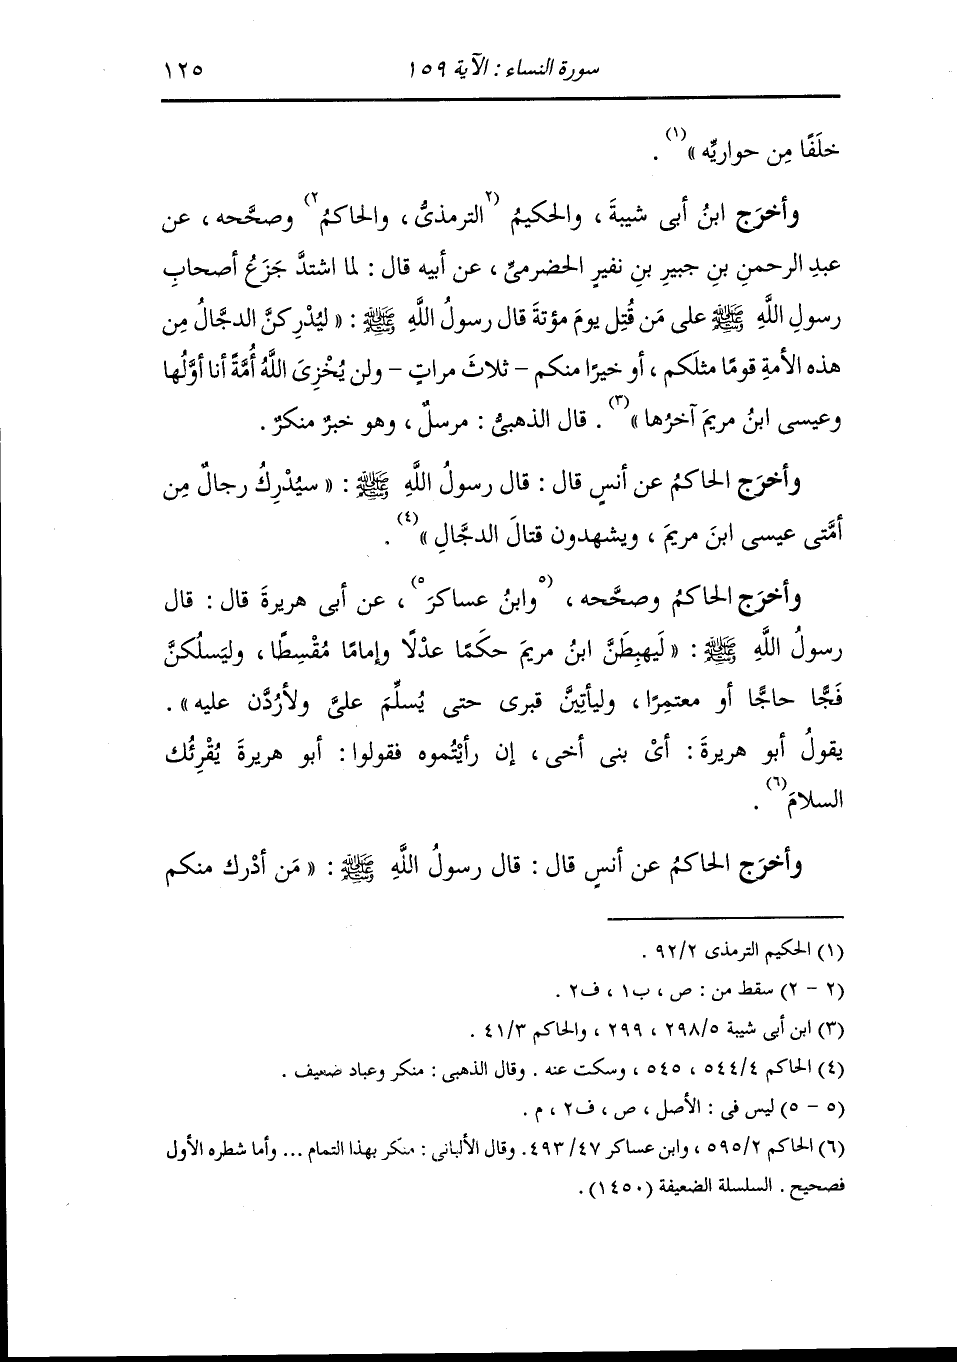 سورة النساء : الآية ١٥٩ ١٢٥
خلَفًا مِن حواريِّه »(١) .
وأخرَج ابنُ أبى شيبةَ ، والحكيمُ (٢الترمذىُّ ، والحاكمُ٢) وصحَّحه ، عن
عبدِ الرحمنِ بنِ جبيرِ بنِ نفيرٍ الحضرمىِّ ، عن أبيه قال : لما اشتدَّ جَزَعُ أصحابِ
رسولِ اللَّهِ ﷺ على مَن قُتِل يومَ مؤتةَ قال رسولُ اللَّهِ ﷺ : « ليُدْرِكنَّ الدجَّالُ مِن
هذه الأمةِ قومًا مثلَكم ، أو خيرًا منكم – ثلاثَ مراتٍ – ولن يُخْزِىَ اللَّهُ أُمَّةً أنا أوَّلُها
وعيسى ابنُ مريمَ آخرُها »(٣) . قال الذهبىُّ : مرسلٌ ، وهو خبرٌ منكرٌ .
وأخرَج الحاكمُ عن أنسٍ قال : قال رسولُ اللَّهِ ﷺ : « سيُدْرِكُ رجالٌ مِن
أمَّتى عيسى ابنَ مريمَ ، ويشهدون قتالَ الدجَّالِ »(٤) .
وأخرَج الحاكمُ وصحَّحه ، (٥وابنُ عساكرَ٥) ، عن أبى هريرةَ قال : قال
رسولُ اللَّهِ ﷺ : « لَيهبِطَنَّ ابنُ مريمَ حكَمًا عدْلًا وإمامًا مُقْسِطًا ، وليَسلُكنَّ
فَجًّا حاجًّا أو معتمِرًا ، وليأتِيَنَّ قبرى حتى يُسلِّمَ علىَّ ولأرُدَّن عليه » .
يقولُ أبو هريرةَ : أىْ بنى أخى ، إن رأيْتُموه فقولوا : أبو هريرةَ يُقْرِئُك
السلامَ(٦) .
وأخرَج الحاكمُ عن أنسٍ قال : قال رسولُ اللَّهِ ﷺ : « مَن أدْرك منكم
(١) الحكيم الترمذى ٩٢/٢ .
(٢ – ٢) سقط من : ص ، ب١ ، ف٢ .
(٣) ابن أبى شيبة ٢٩٨/٥ ، ٢٩٩ ، والحاكم ٤١/٣ .
(٤) الحاكم ٥٤٤/٤ ، ٥٤٥ ، وسكت عنه . وقال الذهبى : منكر وعباد ضعيف .
(٥ – ٥) ليس فى : الأصل ، ص ، ف٢ ، م .
(٦) الحاكم ٥٩٥/٢ ، وابن عساكر ٤٩٣/٤٧ . وقال الألبانى : منكر بهذا التمام ... وأما شطره الأول
فصحيح . السلسلة الضعيفة (١٤٥٠) .